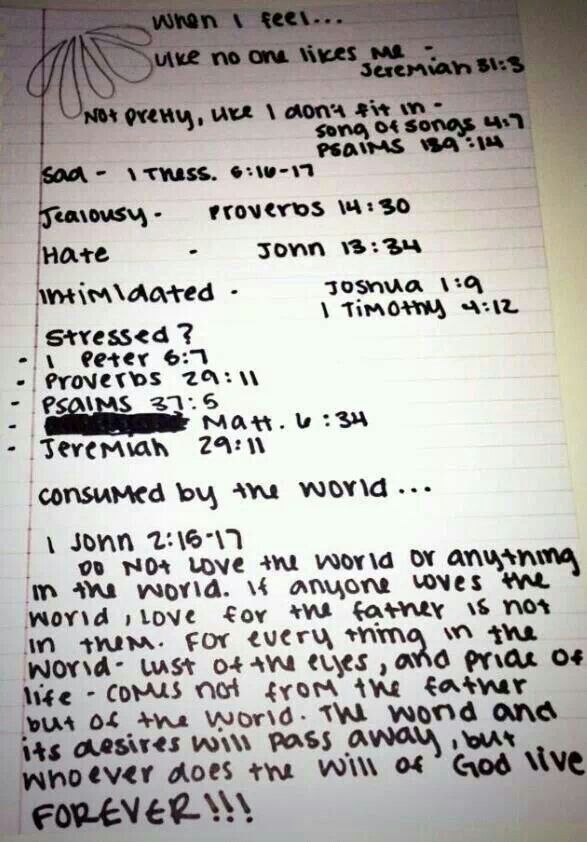 When I feel...
Like no one likes me -
Jeremiah 31:3
Not pretty, like I don't fit in -
Song of Songs 4:7
Psalms 139:14
Sad - 1 Thess. 5:16-17
Jealousy - Proverbs 14:30
Hate - John 13:34
Intimidated - Joshua 1:9
1 Timothy 4:12
Stressed?
- 1 Peter 5:7
- Proverbs 29:11
- Psalms 37:5
- Matt. 6:34
- Jeremiah 29:11
consumed by the world...
1 John 2:15-17
Do not love the world or anything
in the world. If anyone loves the
world, love for the father is not
in them. For every thing in the
world - lust of the eyes, and pride of
life - comes not from the father
but of the world. The world and
its desires will pass away, but
whoever does the will of God live
FOREVER!!!